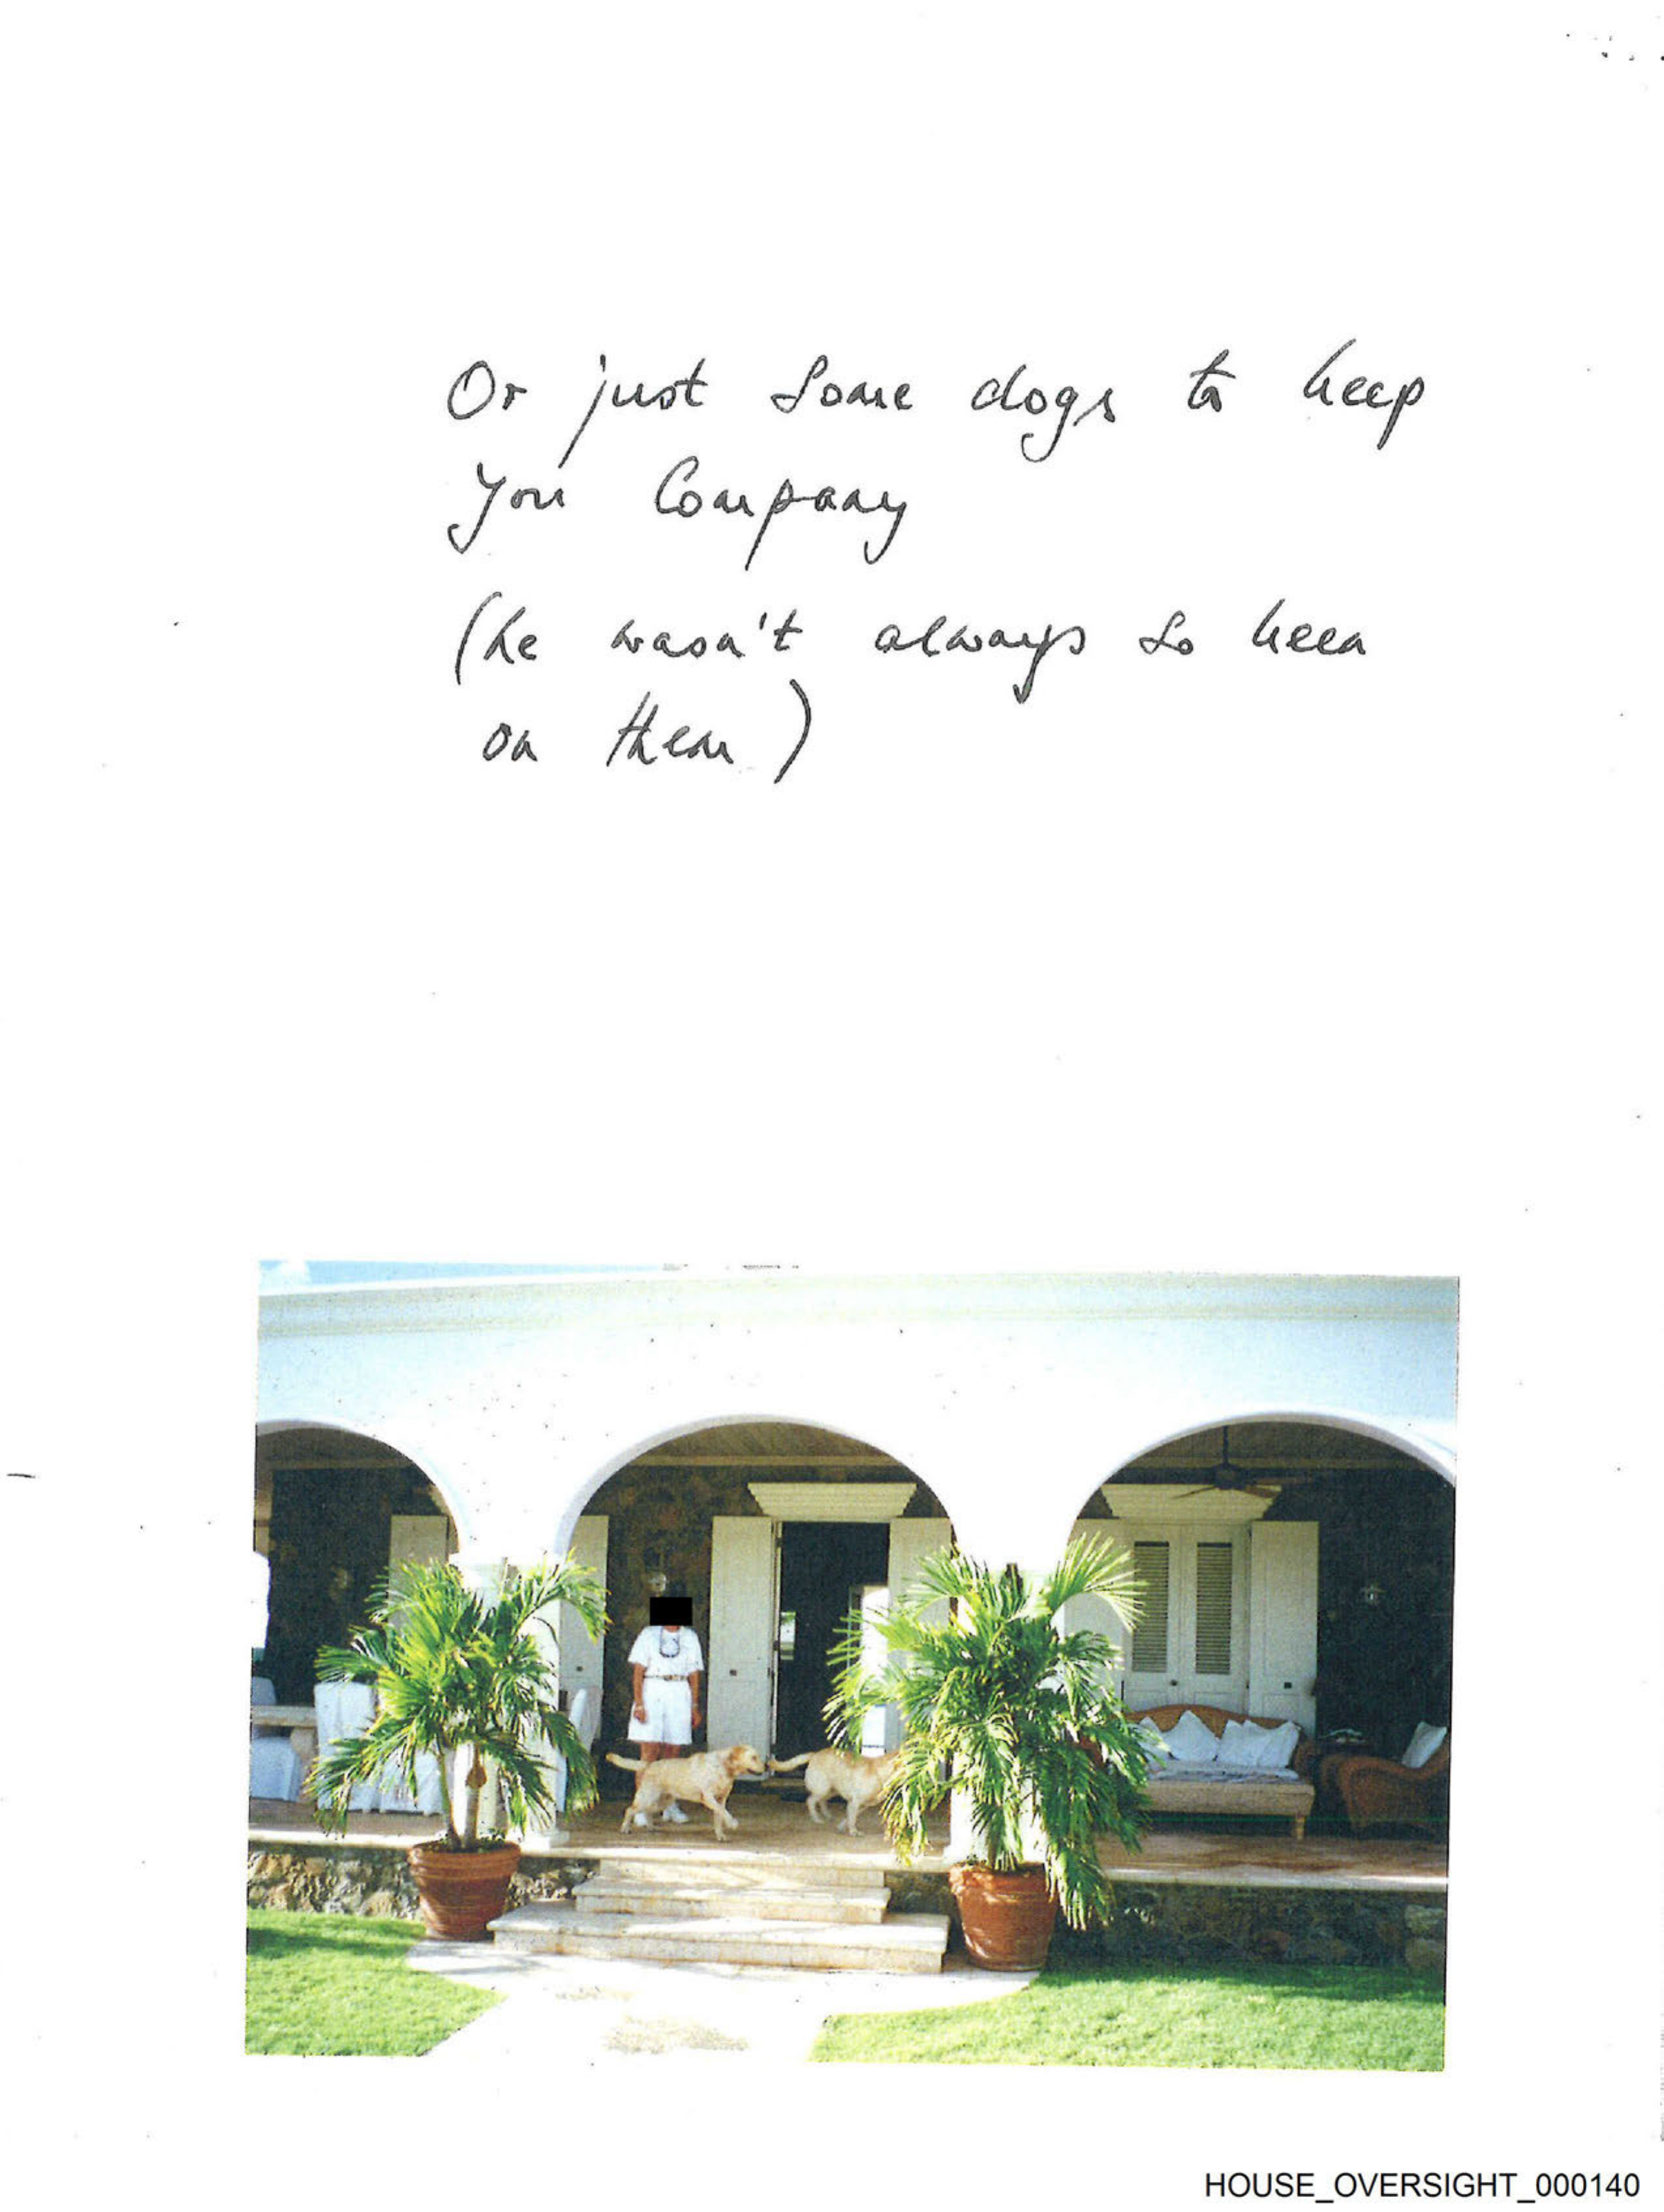 Or just some dogs to keep
you Company
(he wasn't always so keen
on them)
HOUSE_OVERSIGHT_000140